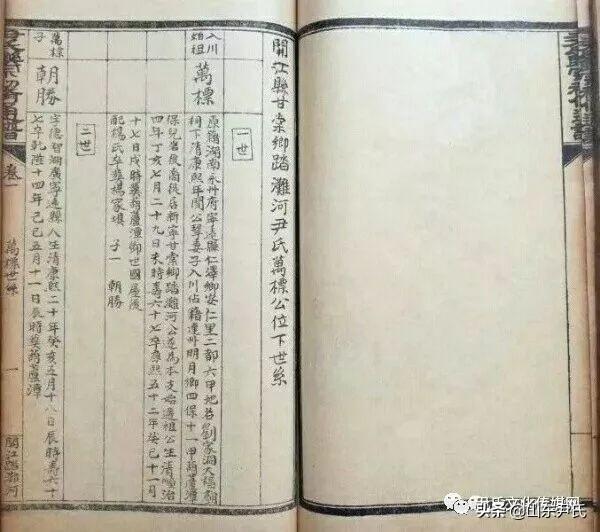 開江縣甘棠鄉踏灘河尹氏萬標公位下世系
一世
入川始祖
萬標
原籍湖南永州府寧遠縣仁澤鄉安仁里二都六甲地名劉家洞大橋頭
祠下清康熙年間公挈妻子入川佔籍達州明月鄉四保十一甲葫蘆潭
保兒岩後街後居新寧甘棠鄉踏灘河公遂為本支始遷祖公生清順治
四年丁亥七月二十九日未時壽六十七卒康熙五十二年癸巳十一月
十七日戌時葬葫蘆潭御世國屋後
配楊氏卒葬楊家埧 子一 朝勝
二世
萬標子
朝勝
字德智湖廣寧遠縣人生清康熙二十年癸亥五月十八日辰時壽六十
七卒乾隆十四年己巳五月十一日辰時葬葫蘆潭
卷一
萬標世系
一
開江踏灘河
尹氏文化传媒网
头条@山东尹氏